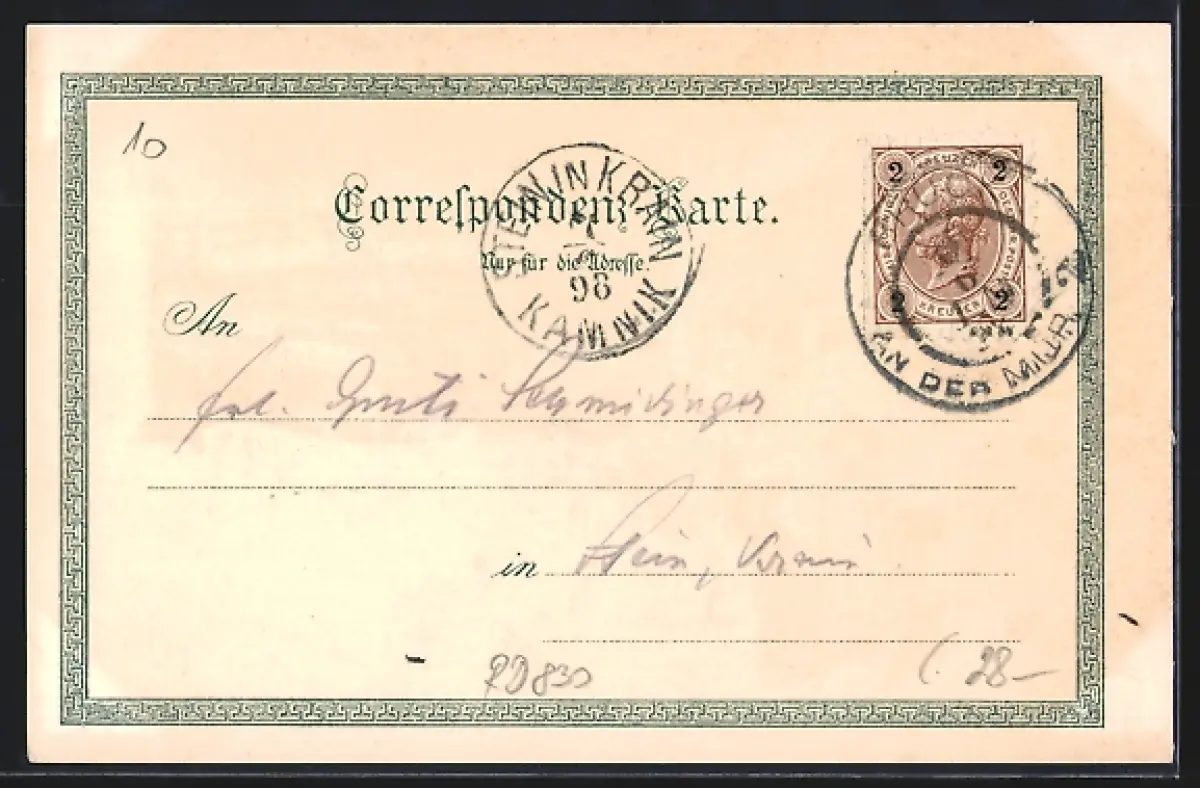 10
Correspondenz-Karte.
Nur für die Adresse.
STEIN IN KRAIN
96
KAMNIK
2 KREUZER 2
2 KREUZER 2
AN DER MUR
An
Frl. Schmidinger
in Stein, Krain
RD830
28-